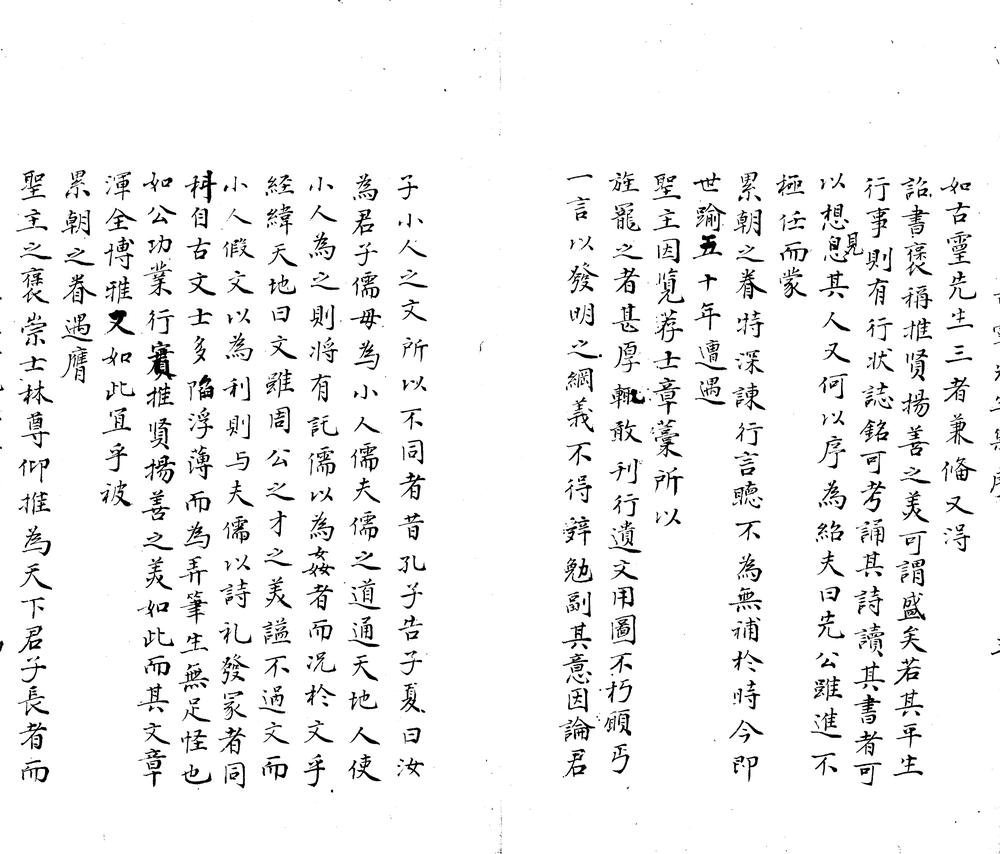 如古靈先生三者兼俻又得
詔書褒稱推賢揚善之美可謂盛矣若其平生
行事則有行狀誌銘可考誦其詩讀其書者可
以想見其人又何以序為紹夫曰先公雖進不
極任而蒙
累朝之眷特深諫行言聽不為無補於時今即
世踰五十年遭遇
聖主因覽荐士章藁所以
旌寵之者甚厚輒敢刊行遺文用圖不朽願丐
一言以發明之綱義不得辭勉副其意因論君
子小人之文所以不同者昔孔子告子夏曰汝
為君子儒毋為小人儒夫儒之道通天地人使
小人為之則將有託儒以為姦者而况於文乎
経緯天地曰文雖周公之才之美謚不過文而
小人假文以為利則与夫儒以詩礼發冢者同
科自古文士多陷浮薄而為弄筆生無足怪也
如公功業行實推賢揚善之美如此而其文章
渾全博雅又如此宜乎被
累朝之眷遇膺
聖主之褒崇士林尊仰推為天下君子長者而